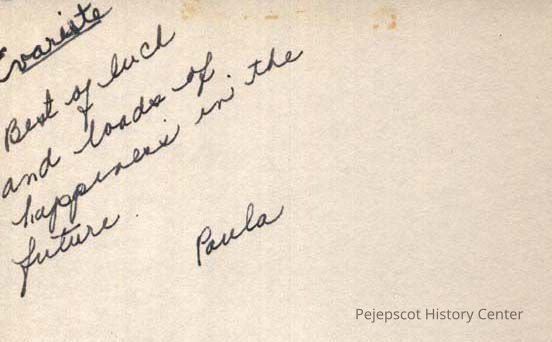 Evariste
Best of luck
and loads of
happiness in the
future.
Paula
Pejepscot History Center